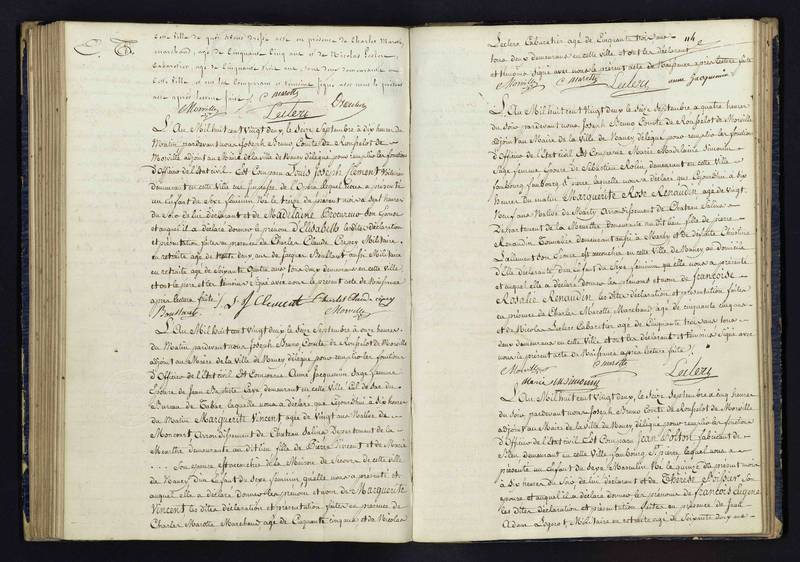 C. T.
dite fille de quoi avons dressé acte en présence de Charles Marotte
marchand, âgé de Cinquante Cinq ans et de Nicolas Leclerc
Cabaretier, âgé de Cinquante trois ans, tous deux demeurant en
cette Ville et ont les Comparans et témoins signé avec nous le présent
acte après lecture faite
Morville Marotte
Leclerc
L'An Mil huit cent Vingt deux, le Seize Septembre à dix heures du
Matin pardevant nous Joseph Bruno Comte de Ranfrelot de
Morville adjoint au Maire de la Ville de Nancy délégué pour remplir les fonctions
d'Officier de l'Etat civil. Est Comparu Louis Joseph Clement Militaire
demeurant en cette Ville lequel nous a présenté
un Enfant du Sexe féminin Né le treize du présent mois à Sept heures
du Soir de lui déclarant et de Madelaine Procureur son Epouse
et auquel il a déclaré donner le prénom d'Elisabelle les dites déclaration
et présentation faites en présence de Charles Claude Crepey Militaire
en retraite âgé de trente deux ans de Jacques Boullard aussi Militaire
en retraite âgé de Soixante Quatre ans tous deux demeurans en cette Ville
et ont le père et les témoins signé avec nous le présent acte de Naissance
après lecture faite
L J Clement Charles Claude Crepey
Morville
L'An Mil huit cent Vingt deux le Seize Septembre à onze heures
du Matin pardevant nous Joseph Bruno Comte de Ranfrelot de Morville
adjoint au Maire de la Ville de Nancy délégué pour remplir les fonctions
d'Officier de l'Etat civil Est Comparue Anne Jacquemin Sage femme
Epouse de Jean Baptiste demeurant en cette Ville
Bureau de Tabac, laquelle nous a déclaré que Aujourd'hui à Six heures
du Matin Marguerite Vincent âgée de Vingt ans Native de
Moncourt Arrondissement de Chateau Salins Département de la
Meurthe demeurante au dit lieu fille de Pierre Vincent et de Marie
.... Son épouse est accouchée en la Maison de Secours de cette Ville
de Nancy d'un Enfant du Sexe féminin qu'elle nous a présenté et
auquel elle a déclaré donner les prénom et nom de Marguerite
Vincent les dites déclaration et présentation faites en présence de
Charles Marotte Marchand âgé de Cinquante cinq ans et de Nicolas
114
Leclerc Cabaretier âgé de Cinquante trois ans
tous deux demeurans en cette Ville et ont les déclarant
et témoins Signé avec nous le présent acte de Naissance après lecture faite
Morville Marotte Leclerc anne Jacquemin
L'An Mil huit cent Vingt deux, le Seize Septembre à quatre heures
du Soir pardevant nous Joseph Bruno Comte de Ranfrelot de Morville
adjoint au Maire de la Ville de Nancy délégué pour remplir les fonctions
d'Officier de l'Etat civil Est Comparue Marie Madelaine Simonin
Sage femme Epouse de Sébastien Rolin, demeurant en cette Ville
faubourg laquelle nous a déclaré que Aujourd'hui à dix
heures du matin Marguerite Rose Renaudin âgée de Vingt
Neuf ans Native de Marly Arrondissement de Chateau Salins
Département de la Meurthe demeurante au dit lieu fille de Pierre
Renaudin Tonnelier demeurant aussi à Marly et de défunte Christine
Lallement Son Epouse est accouchée en cette Ville de Nancy au domicile
d'Elle déclarante d'un Enfant du Sexe féminin qu'elle nous a présenté
et auquel elle a déclaré donner les prénoms et nom de françoise
Rosalie Renaudin les dites déclaration et présentation faites
en présence de Charles Marotte Marchand âgé de cinquante cinq ans
et de Nicolas Leclerc Cabaretier âgé de Cinquante trois ans tous
deux demeurans en cette Ville et ont les déclarant et témoins Signé avec
nous le présent acte de Naissance après lecture faite
Morville Marotte Leclerc
Marie M Simonin
L'An Mil huit cent Vingt deux, le Seize Septembre à cinq heures
du Soir pardevant nous Joseph Bruno Comte de Ranfrelot de Morville
adjoint au Maire de la Ville de Nancy délégué pour remplir les fonctions
d'Officier de l'Etat civil Est Comparu Jean Dolton fabricant de
Bleu demeurant en cette Ville faubourg St pierre, lequel nous a
présenté un Enfant du Sexe Masculin Né le quinze du présent mois
à dix heures du Soir de lui déclarant et de Thérèse Poissier Son
épouse et auquel il a déclaré donner les prénoms de françois Eugène
les dites déclaration et présentation faites en présence de Jean
Adam Militaire en retraite âgé de Soixante deux ans